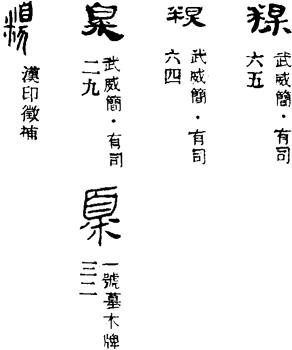 武威簡・有司
六五
武威簡・有司
六四
武威簡・有司
二九
一號墓木牌
三二
漢印徵補